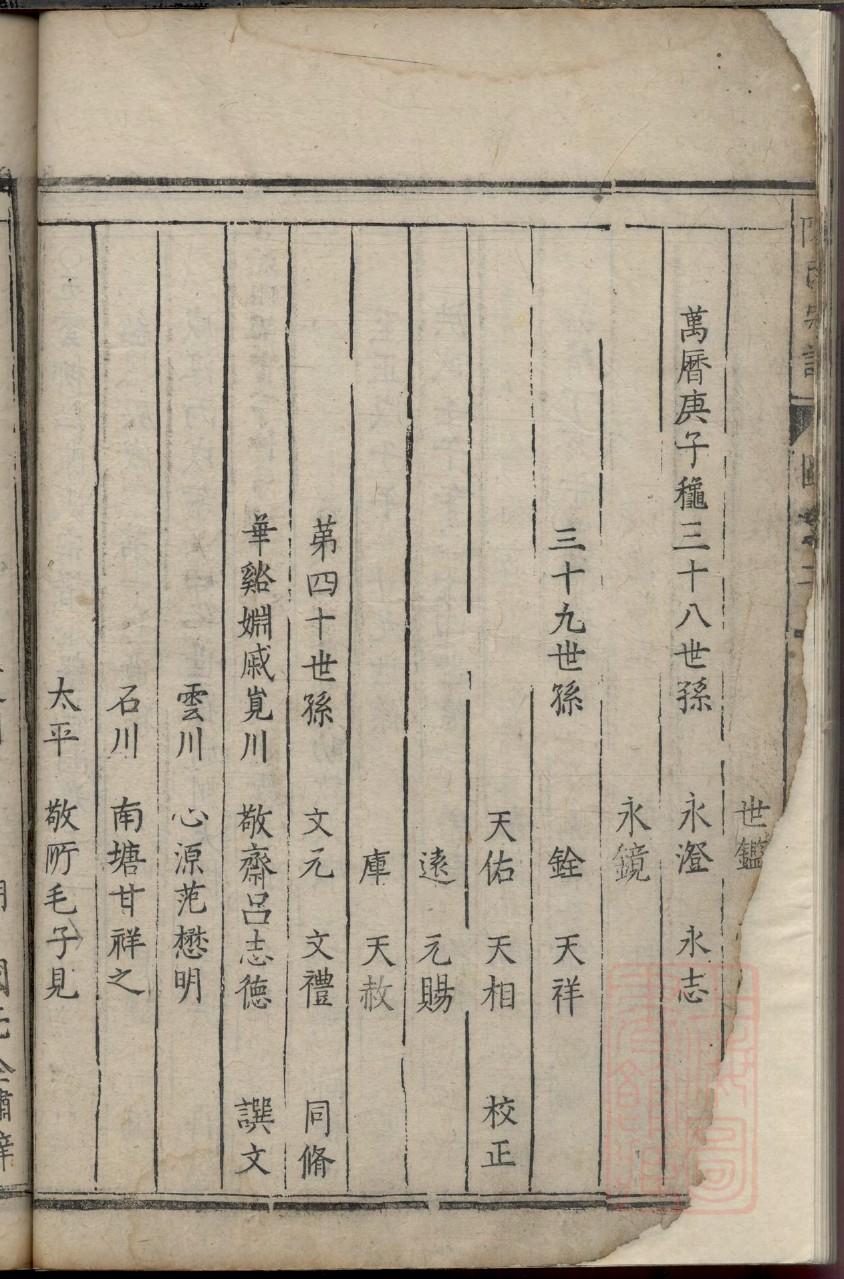 世鑑
萬曆庚子穐三十八世孫 永澄 永志
永鏡
三十九世孫 銓 天祥
天佑 天相 校正
遠 元賜
庫 天赦
苐四十世孫 文元 文禮 同脩
華谿姻戚㝡川 敬齋呂志德 譔文
雲川 心源范懋明
石川 南塘甘祥之
太平 敬所毛子見